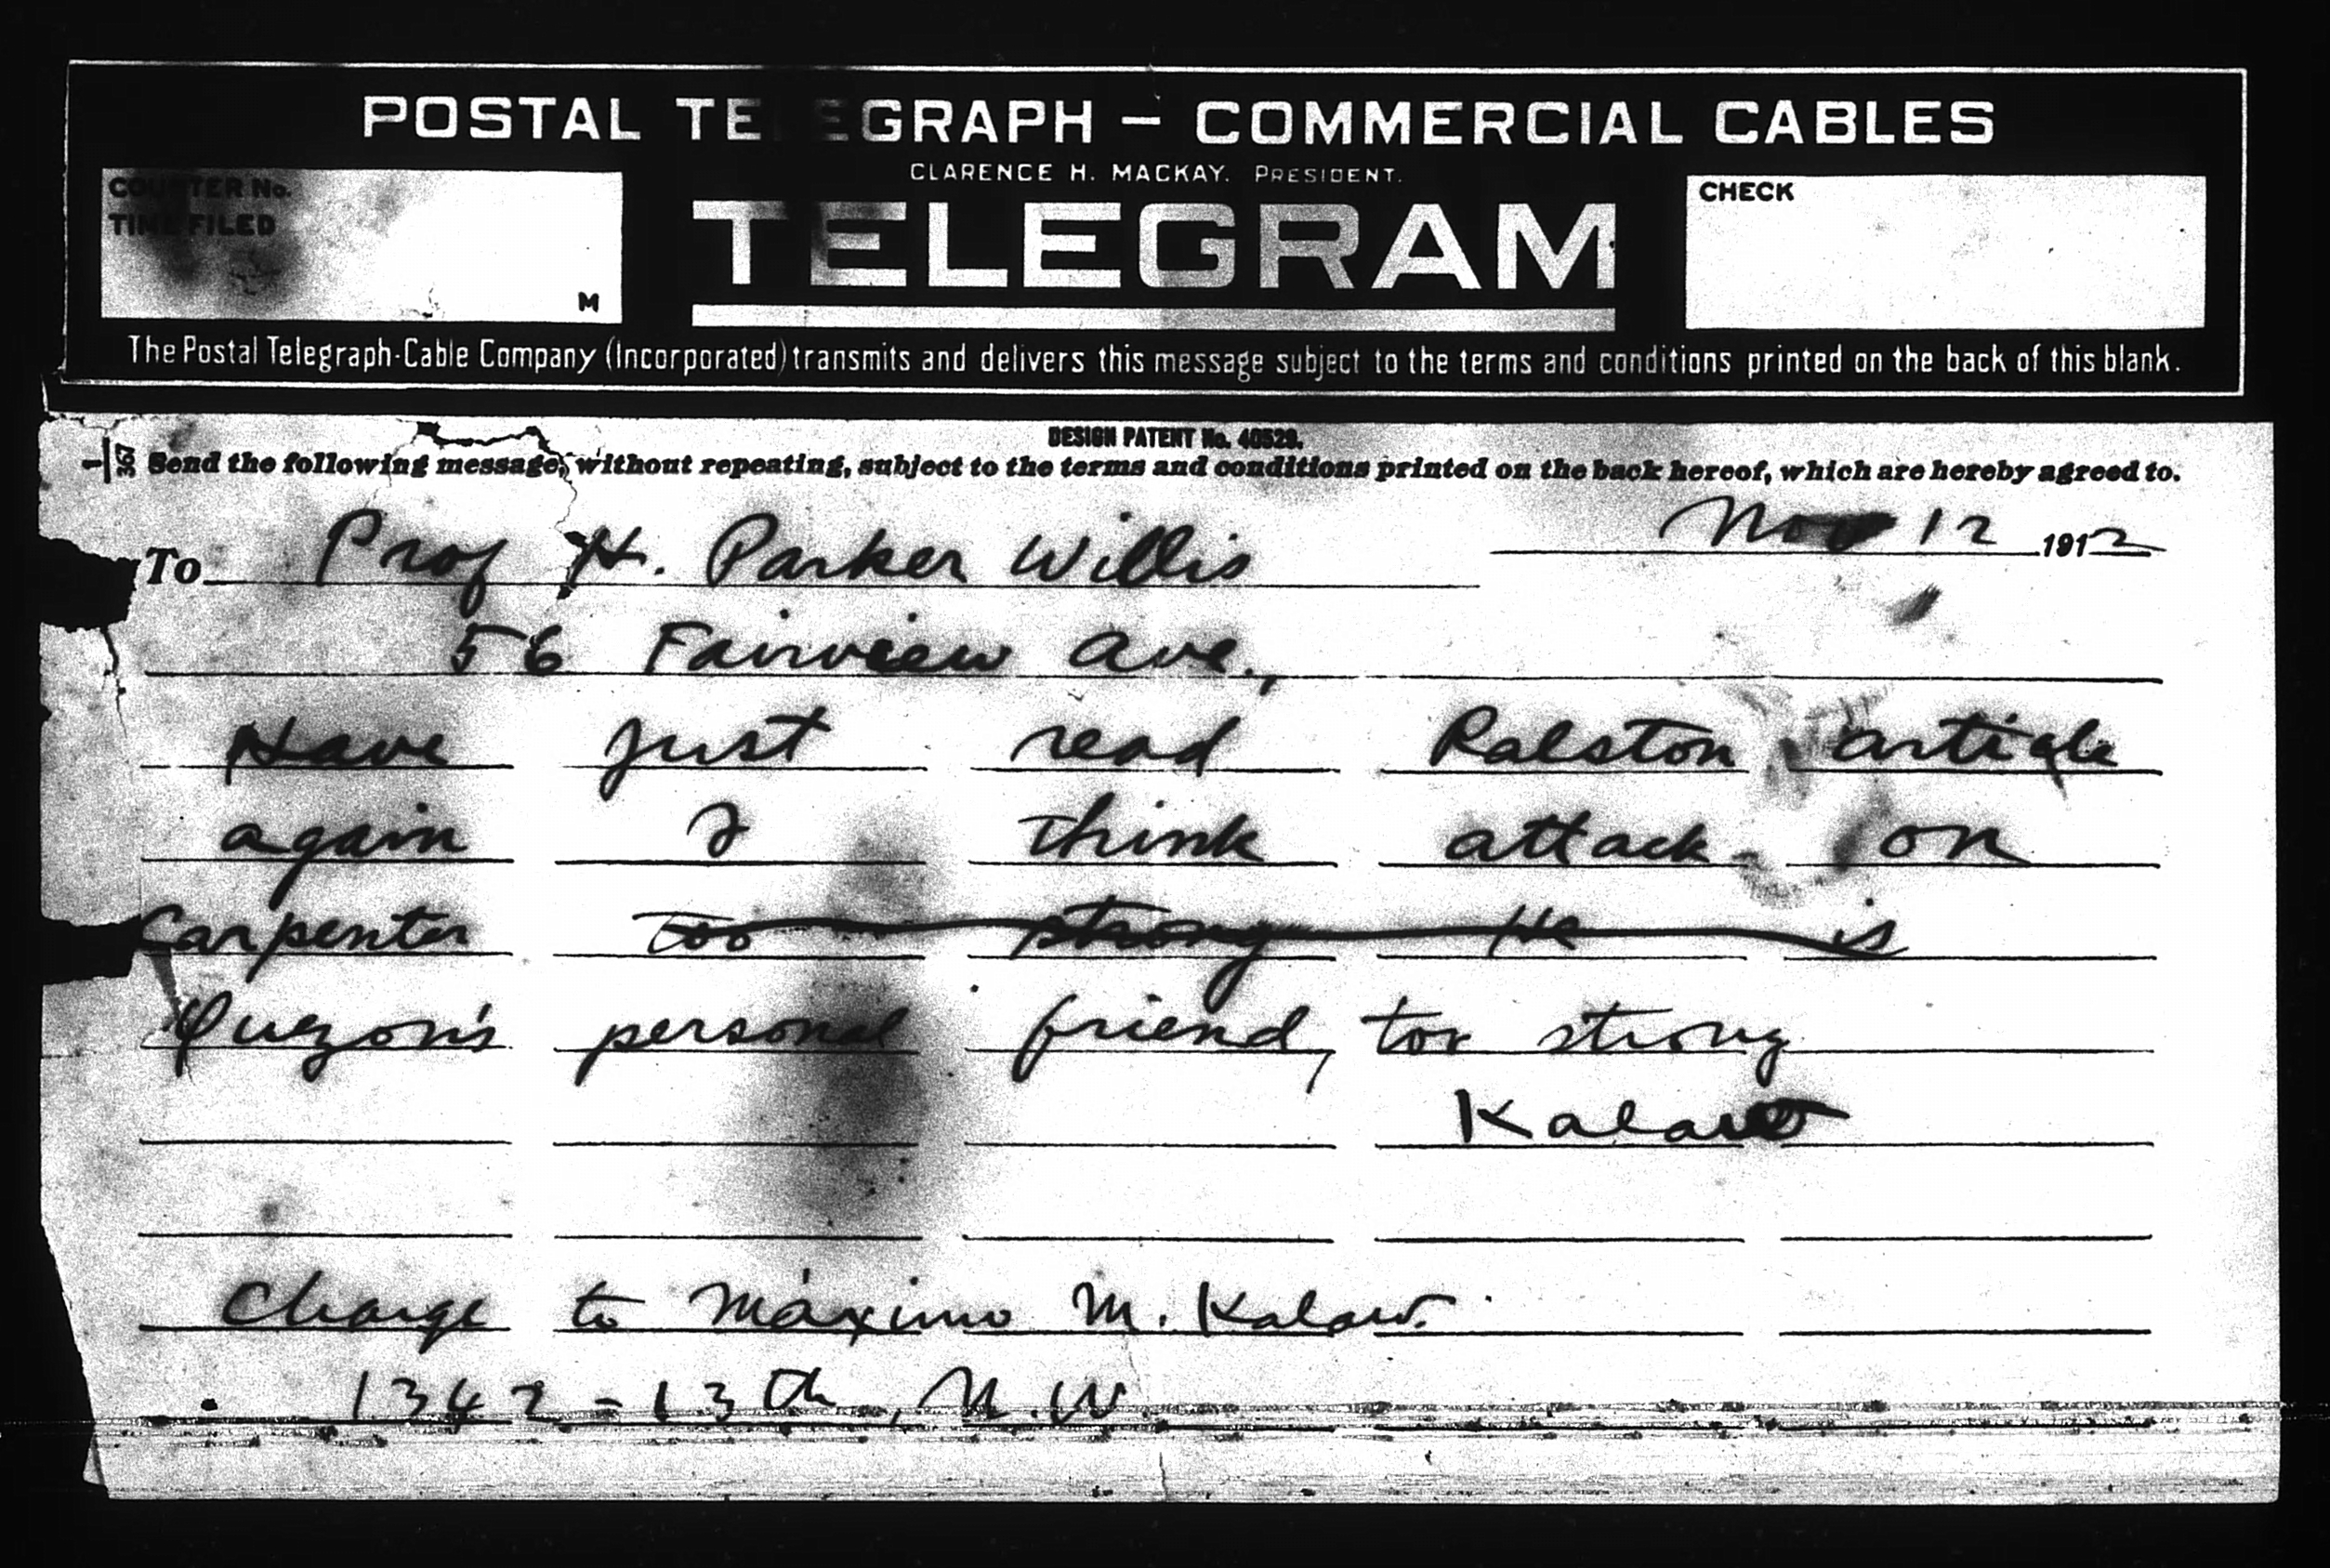 POSTAL TELEGRAPH - COMMERCIAL CABLES
CLARENCE H. MACKAY, PRESIDENT.
COUNTER No.
TIME FILED
M
TELEGRAM
CHECK
The Postal Telegraph-Cable Company (Incorporated) transmits and delivers this message subject to the terms and conditions printed on the back of this blank.
DESIGN PATENT No. 40529.
1-367
Send the following message, without repeating, subject to the terms and conditions printed on the back hereof, which are hereby agreed to.
Nov 12 1912
To Prof H. Parker Willis
56 Fairview Ave.,
Have just read Ralston article
again I think attack on
Carpenter too strong He is
Quezon's personal friend, too strong
Kalaw
Charge to Máximo M. Kalaw.
1342 - 13th, N.W.